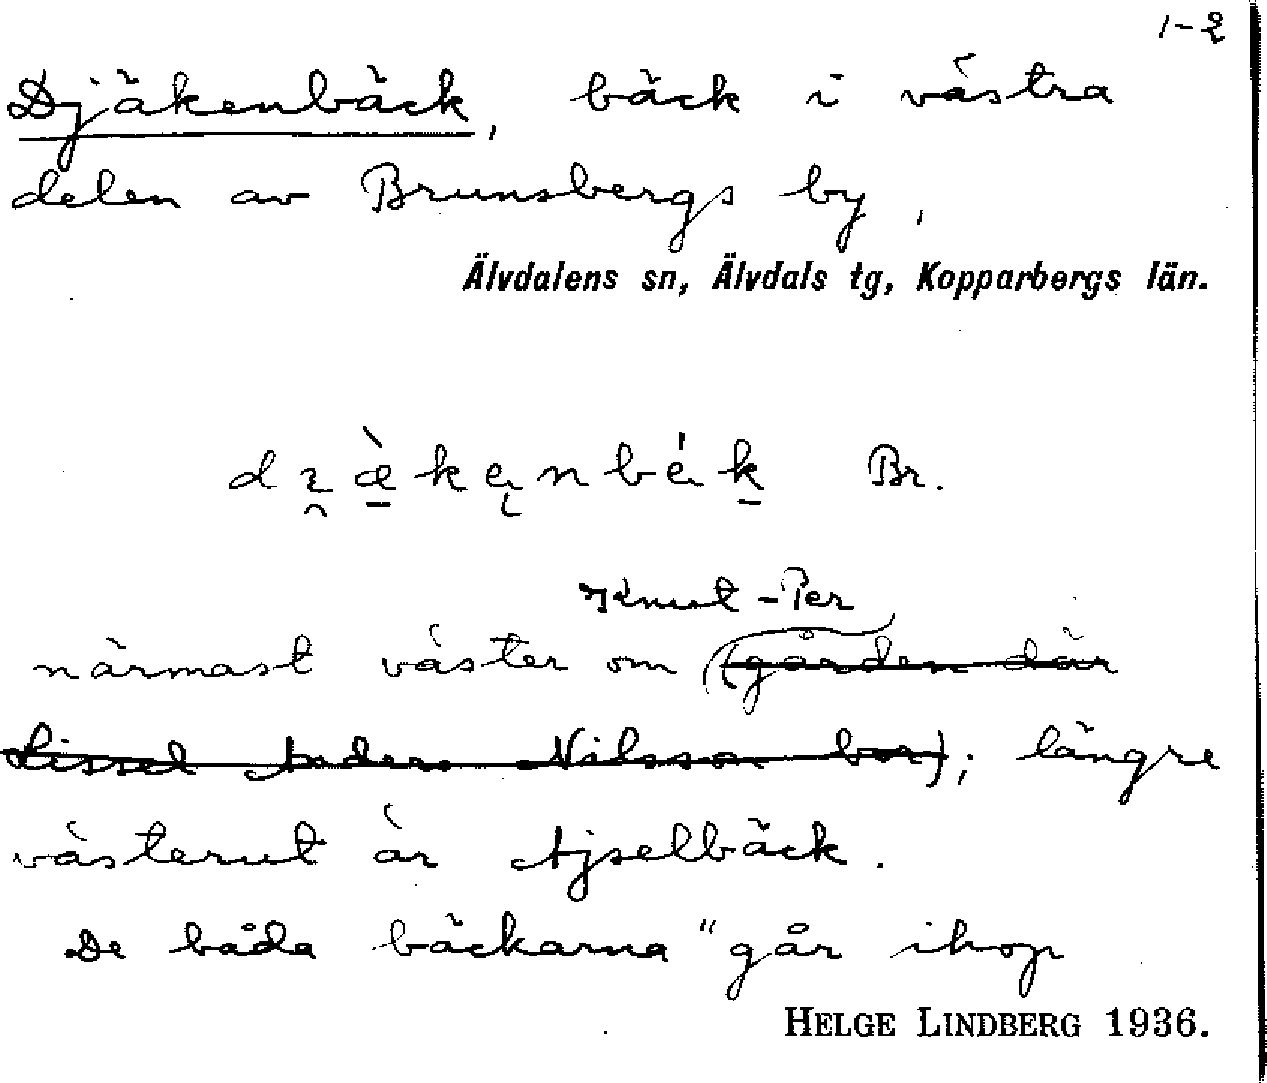 1-2
Djäkenbäck, bäck i västra
delen av Brunsbergs by,
Älvdalens sn, Älvdals tg, Kopparbergs län.
Br.
Knut-Per
närmast väster om (gården där
Lissel Anders Nilsson bor); längre
västerut är Ajselbäck.
De båda bäckarna "går ihop
HELGE LINDBERG 1936.